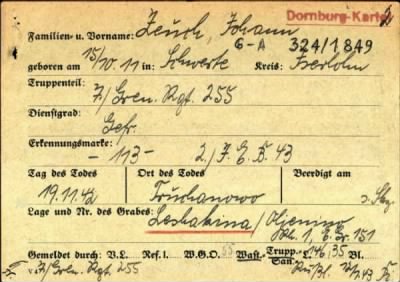 Dornburg-Kartei
Familien- u. Vorname: Zeuch, Johann
G-A 324/1849
geboren am 15/10.11 in: Schwerte Kreis: Iserlohn
Truppenteil:
7./Gren. Rgt. 255
Dienstgrad:
Gefr.
Erkennungsmarke:
- 113 - 2./J.E.B. 43
Tag des Todes Ort des Todes Beerdigt am
19.11.42 Truchanowo
Lage und Nr. des Grabes: Leshakina/
1. 151
Gemeldet durch: V.L. Ref. I. W.G.O. Wast.- Trupp.- 146/35 Bl.
San.-
7/Gren. Rgt. 255